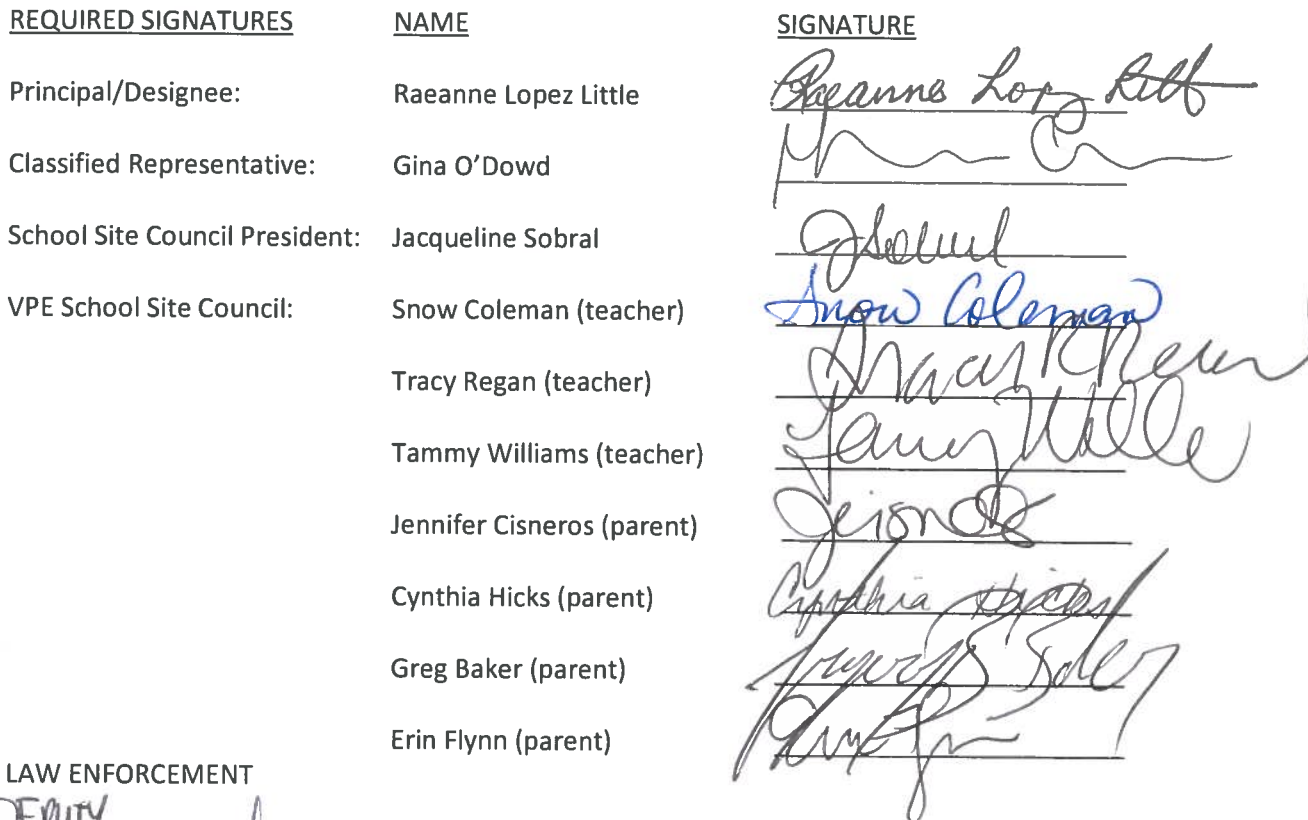 REQUIRED SIGNATURES NAME SIGNATURE
Principal/Designee: Raeanne Lopez Little Raeanne Lopez
Classified Representative: Gina O'Dowd
School Site Council President: Jacqueline Sobral
VPE School Site Council: Snow Coleman (teacher) Snow Coleman
Tracy Regan (teacher) Tracy
Tammy Williams (teacher)
Jennifer Cisneros (parent)
Cynthia Hicks (parent) Cynthia Hicks
Greg Baker (parent)
Erin Flynn (parent)
LAW ENFORCEMENT
DEPUTY